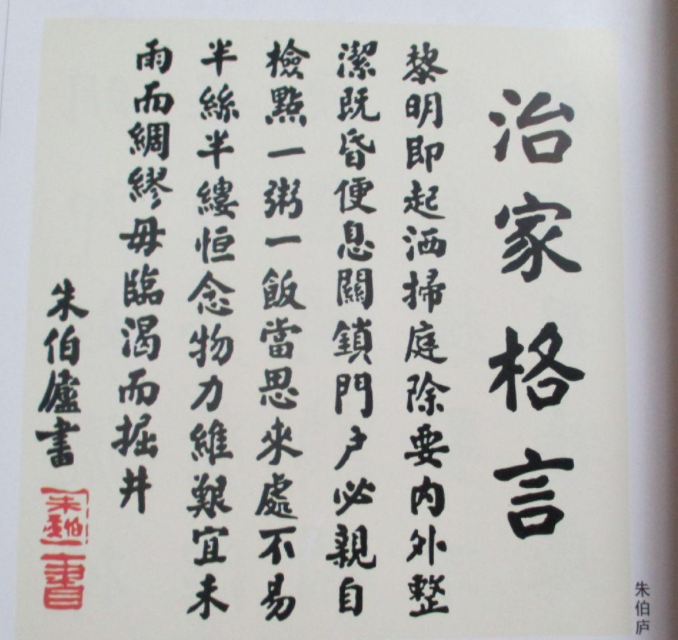 治家格言
黎明即起洒掃庭除要内外整
潔既昏便息關鎖門户必親自
檢點一粥一飯當思來處不易
半絲半縷恒念物力維艱宜未
雨而綢繆毋臨渴而掘井
朱伯廬書
朱伯廬書
朱伯庐